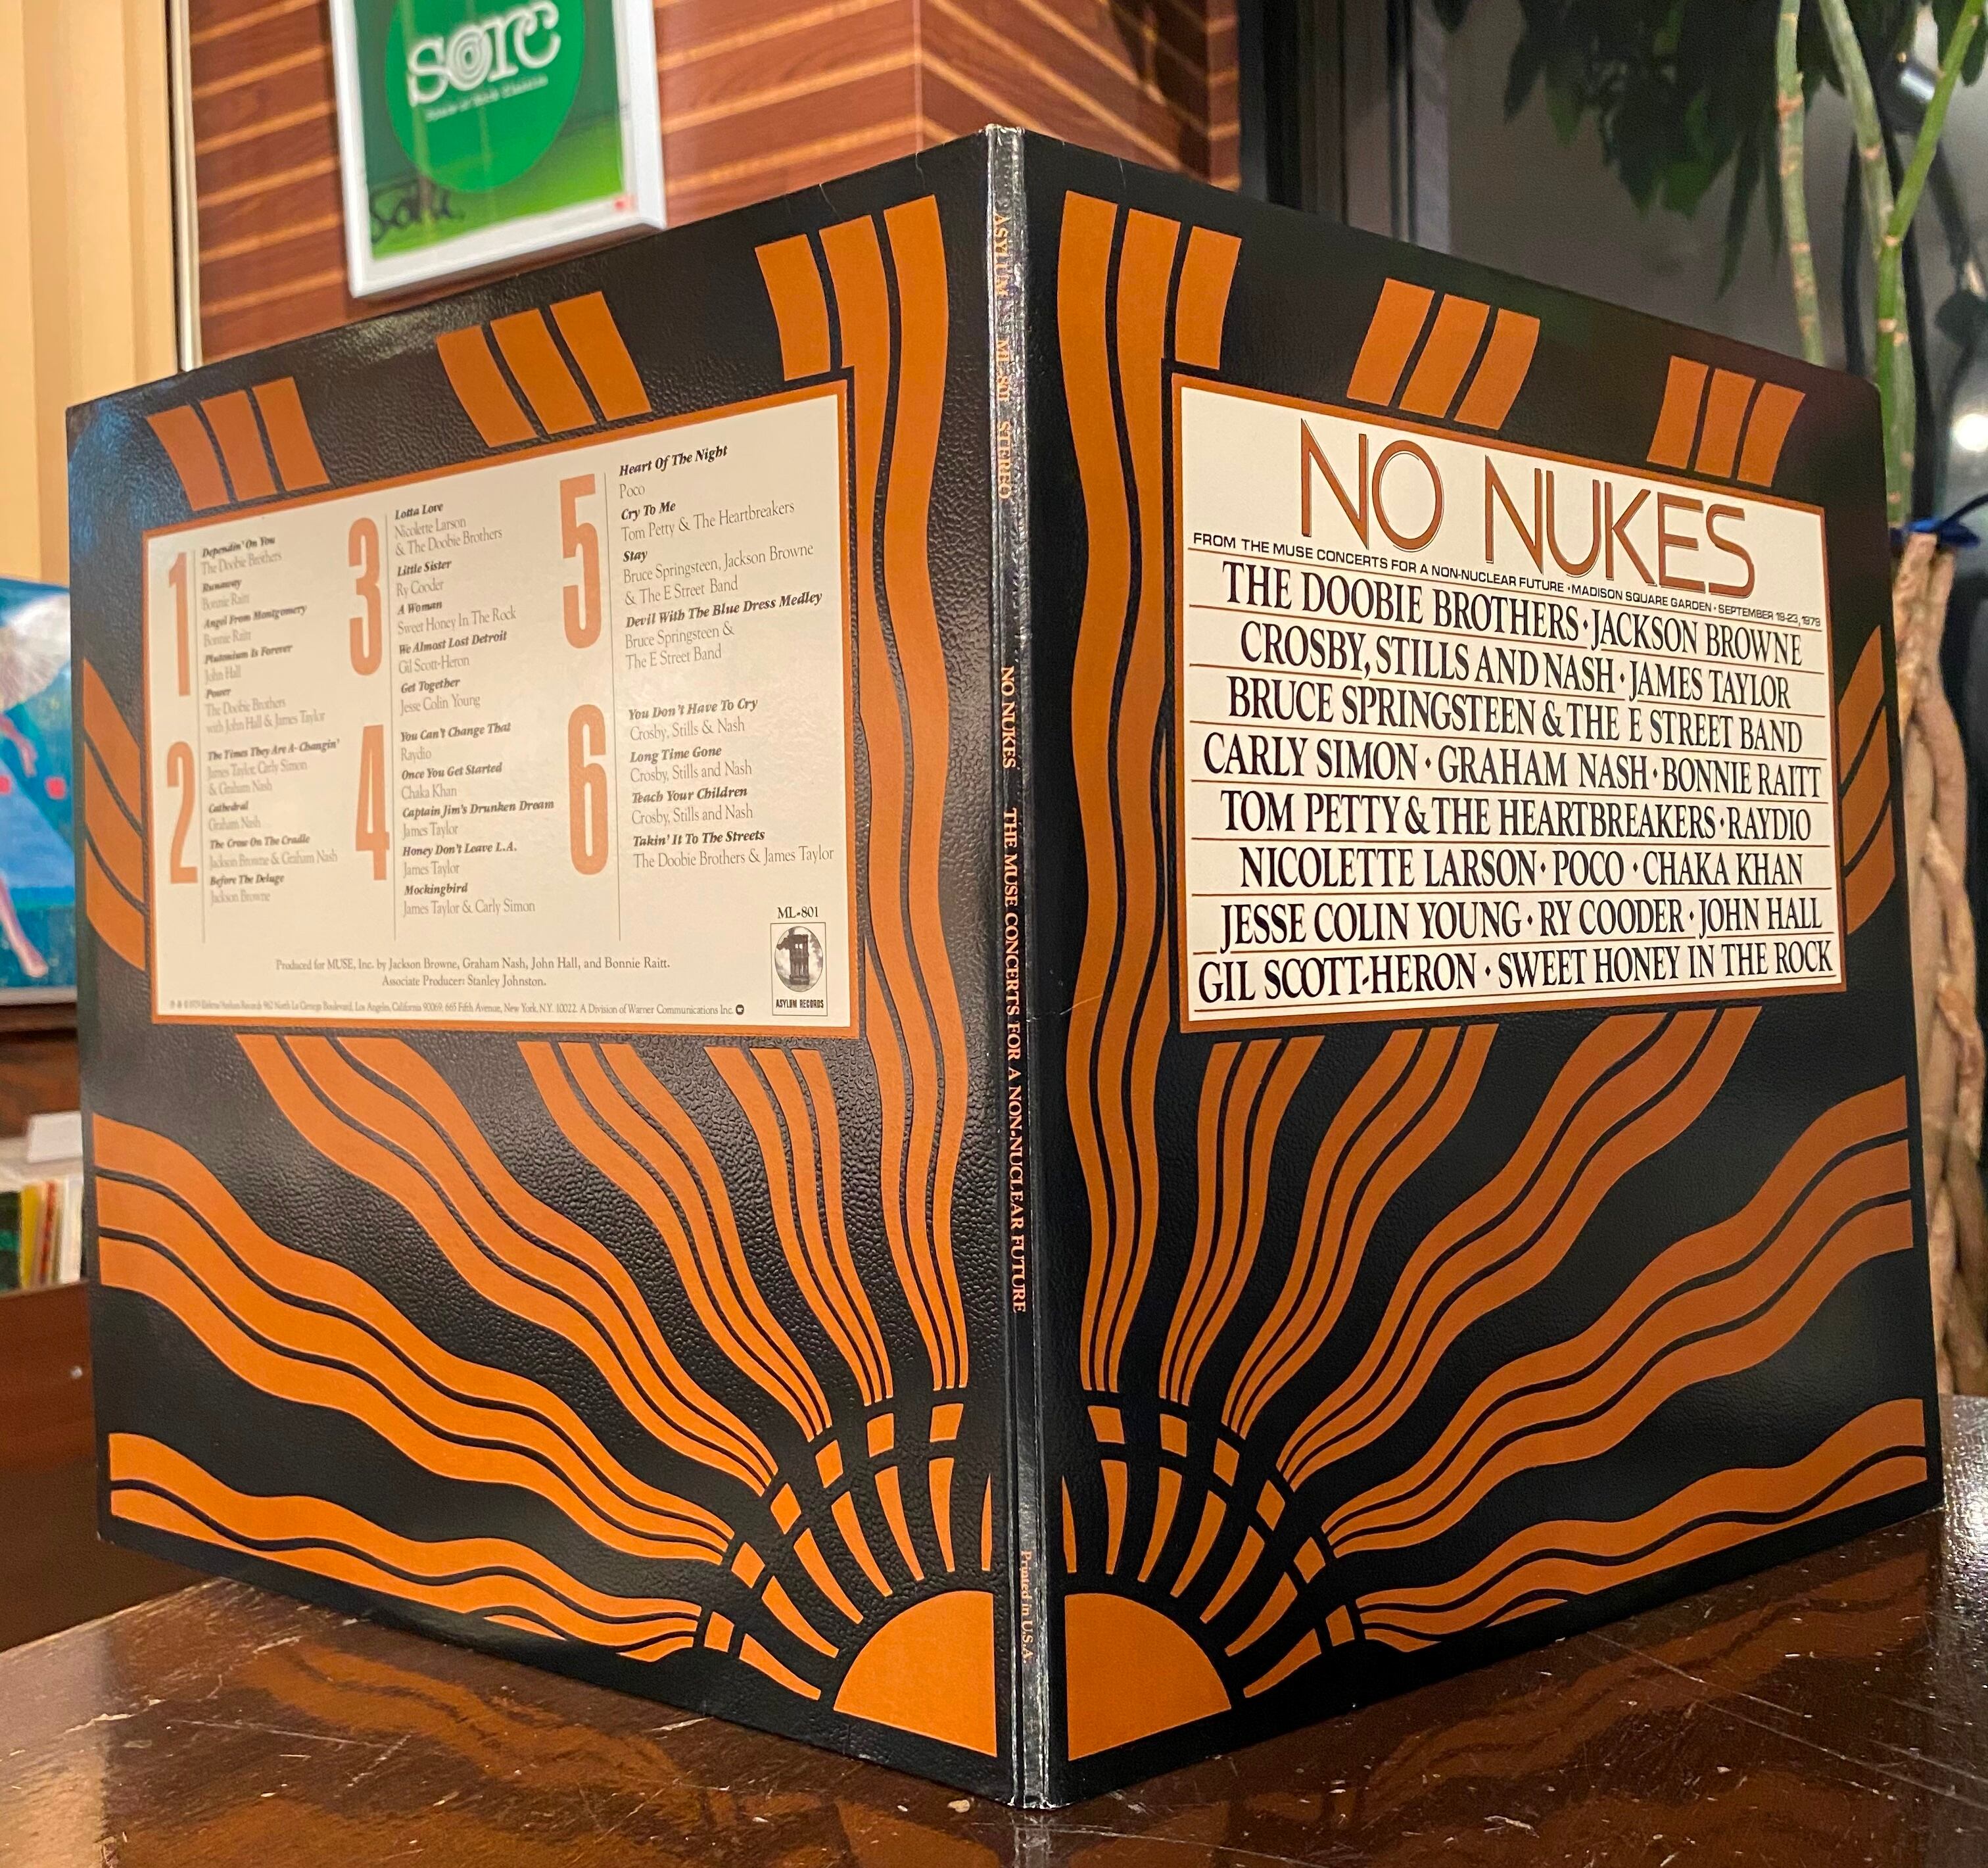 sarc
ASYLUM
ML-801
STEREO
NO NUKES
THE MUSE CONCERTS FOR A NON-NUCLEAR FUTURE
Printed in U.S.A.
1
Dependin' On You
The Doobie Brothers
Runaway
Bonnie Raitt
Angel From Montgomery
Bonnie Raitt
Plutonium Is Forever
John Hall
Power
The Doobie Brothers
with John Hall & James Taylor
2
The Times They Are A-Changin'
James Taylor, Carly Simon
& Graham Nash
Cathedral
Graham Nash
The Crow On The Cradle
Jackson Browne & Graham Nash
Before The Deluge
Jackson Browne
3
Lotta Love
Nicolette Larson
& The Doobie Brothers
Little Sister
Ry Cooder
A Woman
Sweet Honey In The Rock
We Almost Lost Detroit
Gil Scott-Heron
Get Together
Jesse Colin Young
4
You Can't Change That
Raydio
Once You Get Started
Chaka Khan
Captain Jim's Drunken Dream
James Taylor
Honey Don't Leave L.A.
James Taylor
Mockingbird
James Taylor & Carly Simon
5
Heart Of The Night
Poco
Cry To Me
Tom Petty & The Heartbreakers
Stay
Bruce Springsteen, Jackson Browne
& The E Street Band
Devil With The Blue Dress Medley
Bruce Springsteen &
The E Street Band
6
You Don't Have To Cry
Crosby, Stills & Nash
Long Time Gone
Crosby, Stills and Nash
Teach Your Children
Crosby, Stills and Nash
Takin' It To The Streets
The Doobie Brothers & James Taylor
ML-801
ASYLUM RECORDS
Produced for MUSE, Inc. by Jackson Browne, Graham Nash, John Hall, and Bonnie Raitt.
Associate Producer: Stanley Johnston.
1979 Elektra/Asylum Records 962 North La Cienega Boulevard, Los Angeles, California 90069. 665 Fifth Avenue, New York, N.Y. 10022. A Division of Warner Communications Inc.
NO NUKES
FROM THE MUSE CONCERTS FOR A NON-NUCLEAR FUTURE • MADISON SQUARE GARDEN • SEPTEMBER 19-23, 1979
THE DOOBIE BROTHERS • JACKSON BROWNE
CROSBY, STILLS AND NASH • JAMES TAYLOR
BRUCE SPRINGSTEEN & THE E STREET BAND
CARLY SIMON • GRAHAM NASH • BONNIE RAITT
TOM PETTY & THE HEARTBREAKERS • RAYDIO
NICOLETTE LARSON • POCO • CHAKA KHAN
JESSE COLIN YOUNG • RY COODER • JOHN HALL
GIL SCOTT-HERON • SWEET HONEY IN THE ROCK